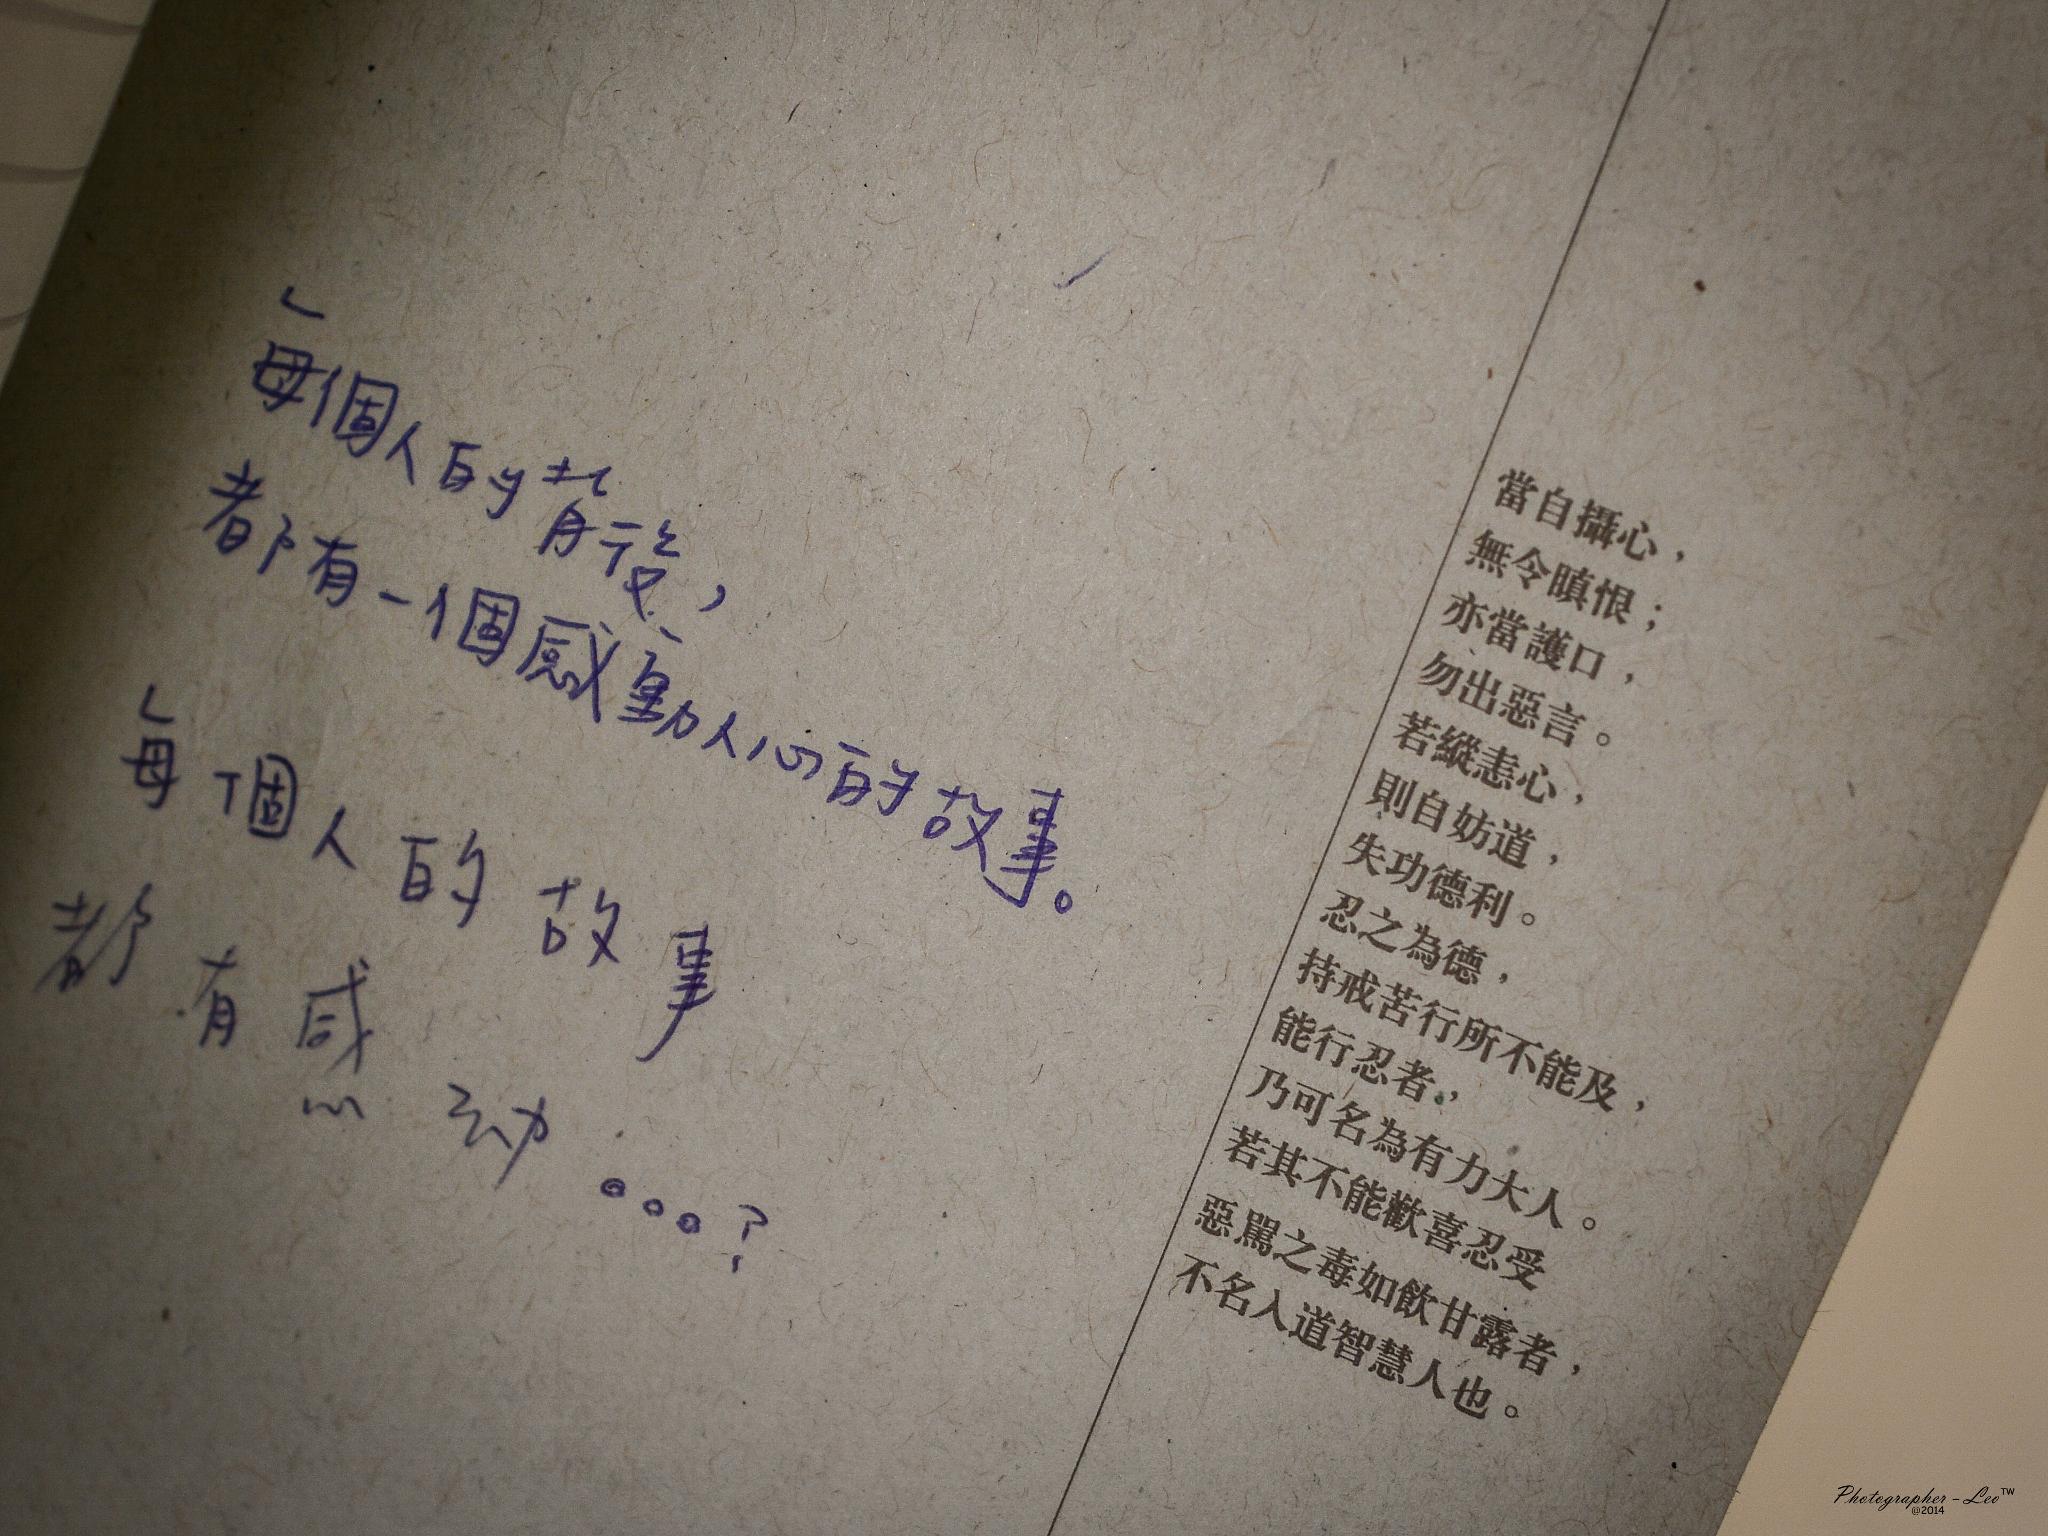 每個人的背後，
都有一個感動人心的故事。
每個人的故事
都有感动。。。?
當自攝心，
無令瞋恨；
亦當護口，
勿出惡言。
若縱恚心，
則自妨道，
失功德利。
忍之為德，
持戒苦行所不能及，
能行忍者，
乃可名為有力大人。
若其不能歡喜忍受
惡罵之毒如飲甘露者，
不名入道智慧人也。
Photographer - Leo™
@2014